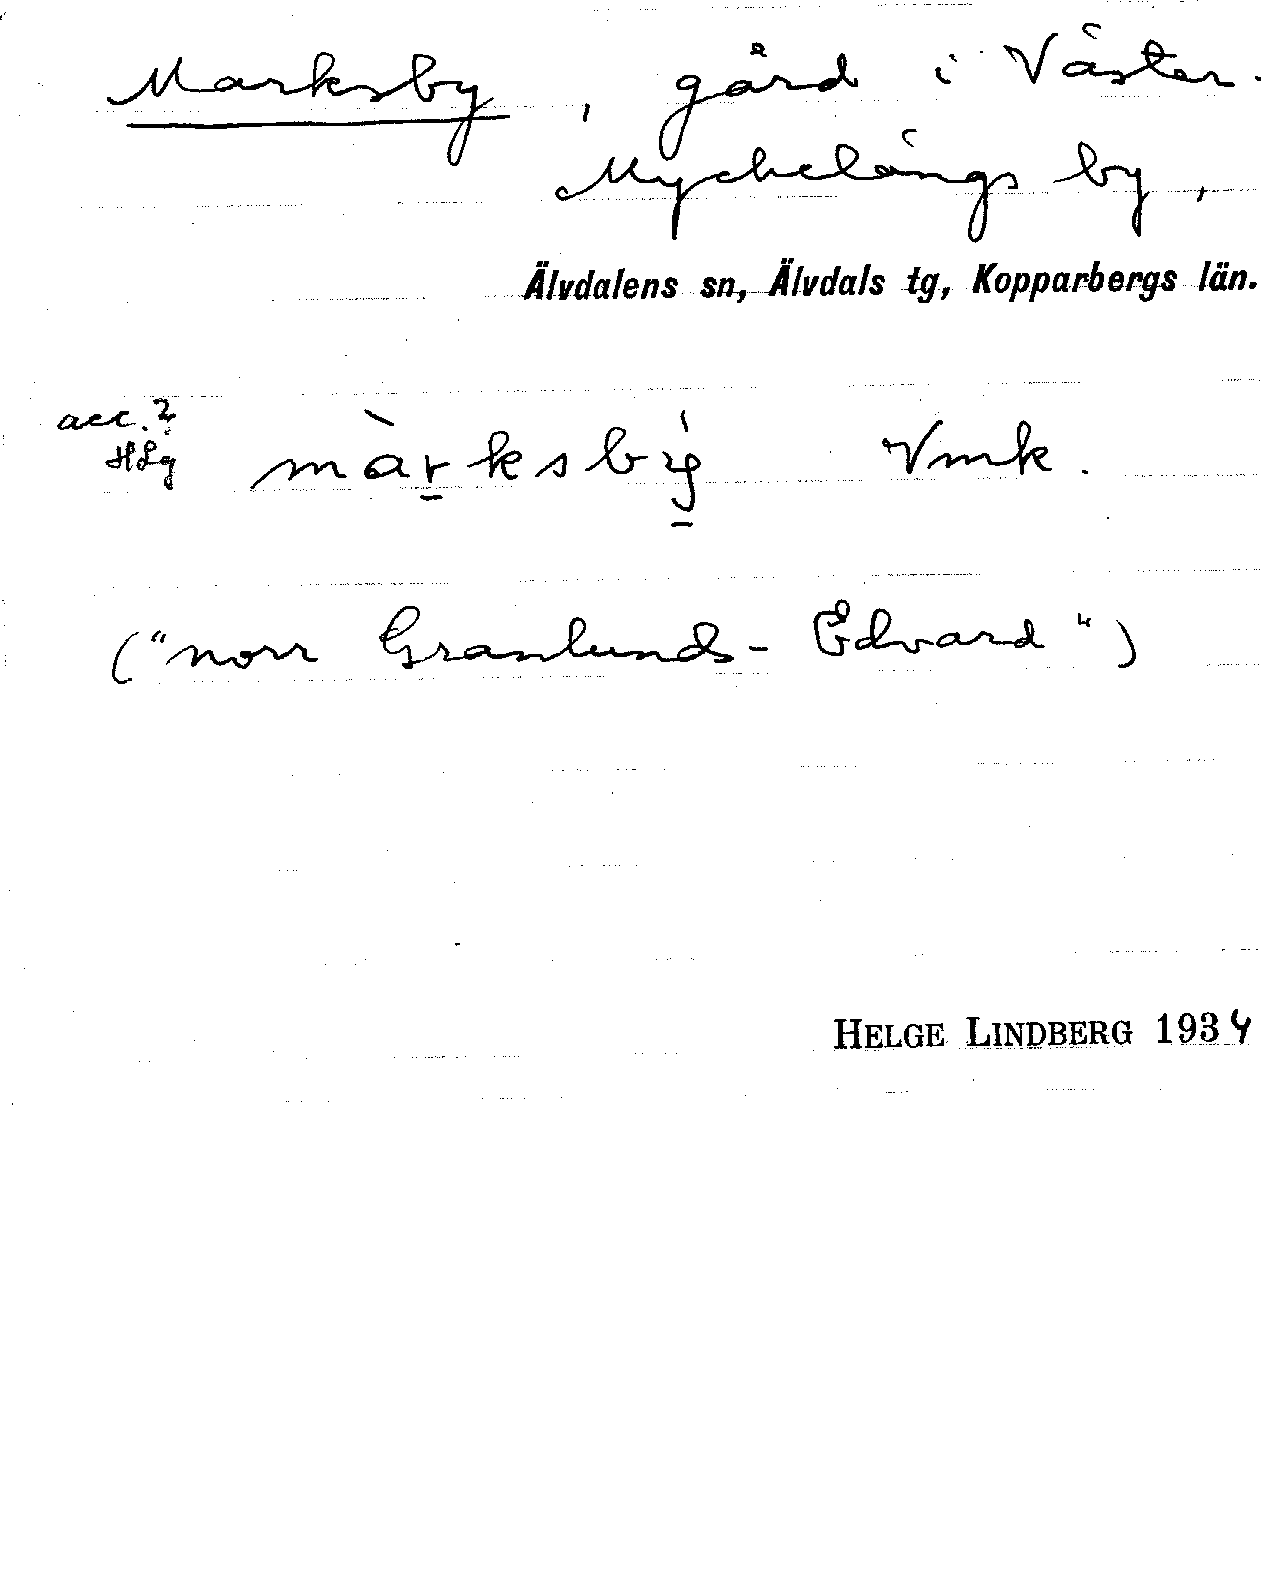 Marksby, gård i Väster.
Myckelängs by,
Älvdalens sn, Älvdals tg, Kopparbergs län.
acc.?
HLg
màrksbý Vmk.
("norr Granlunds-Edvard")
HELGE LINDBERG 1934